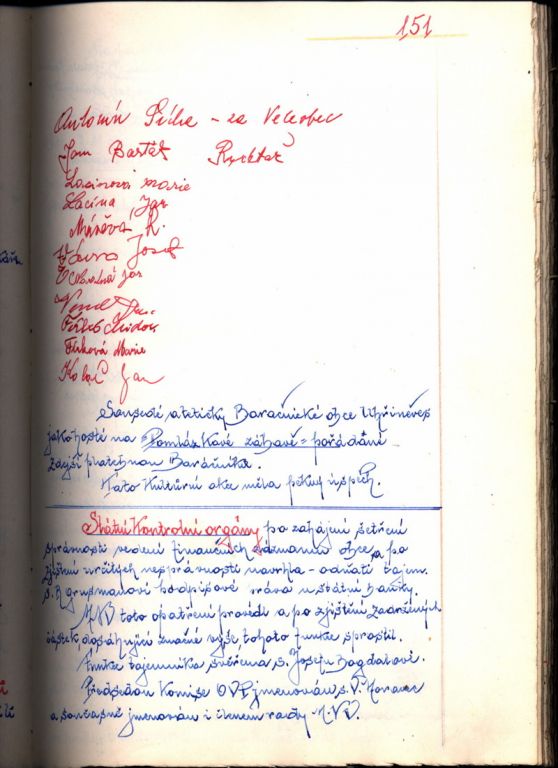 151
Antonín Pícha - za Veleobec
Jan Barták Rychtář
Lacinová Marie
Lacina Jan
R.
Vávra Josef
Jan
Flíková Marie
Kolář Jan
Sousedé a tetičky Baráčnické obce Uhříněves
jako hosté na "Pomlázkové zábavě" pořádané
zdejší
Tato Kulturní akce měla pěkný úspěch.
Státní Kontrolní orgány po zahájení šetření
správnosti vedení finančních záznamů obce a po
zjištění určitých nesprávností navrhla - odnětí tajem.
s. podpisové práva u státní banky.
MNV toto opatření provádí a po zjištění zadržených
částek, dosahující značné výše, tohoto funkce sprostil.
Funkce tajemníka svěřena s. Josefu Bogdalovi.
Předsedou Komise OVP jmenován s. V. Moravec
a současně jmenován i členem rady MNV.